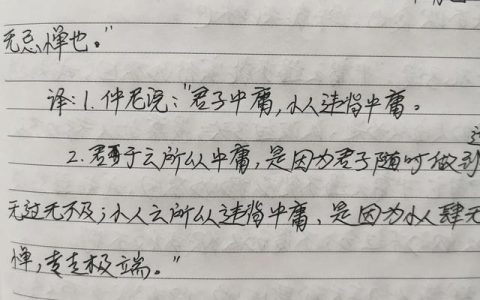 无忌惮也。"
译:1.仲尼说:"君子中庸,小人违背中庸。
2.君子之所以中庸,是因为君子随时做到
无过无不及;小人之所以违背中庸、是因为小人肆无
惮,专走极端。"